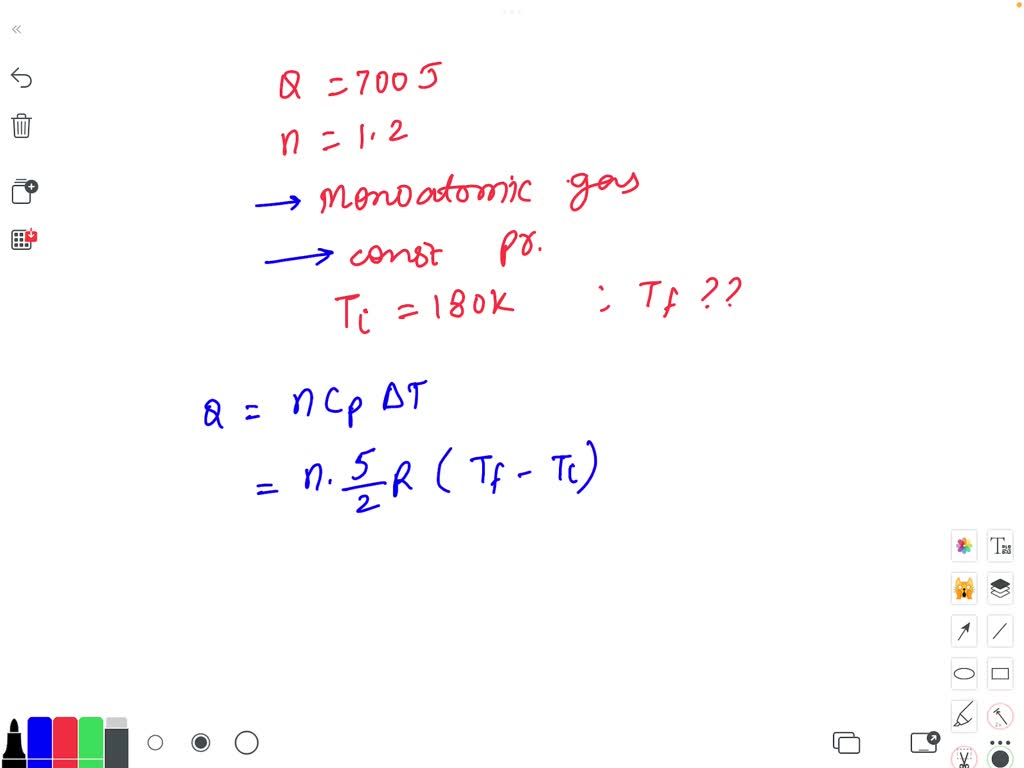 Q = 700 J
n = 1.2
→ Monoatomic gas
→ const pr.
Ti = 180K : Tf ??
Q = n Cp ΔT
= n. 5/2 R (Tf - Ti)